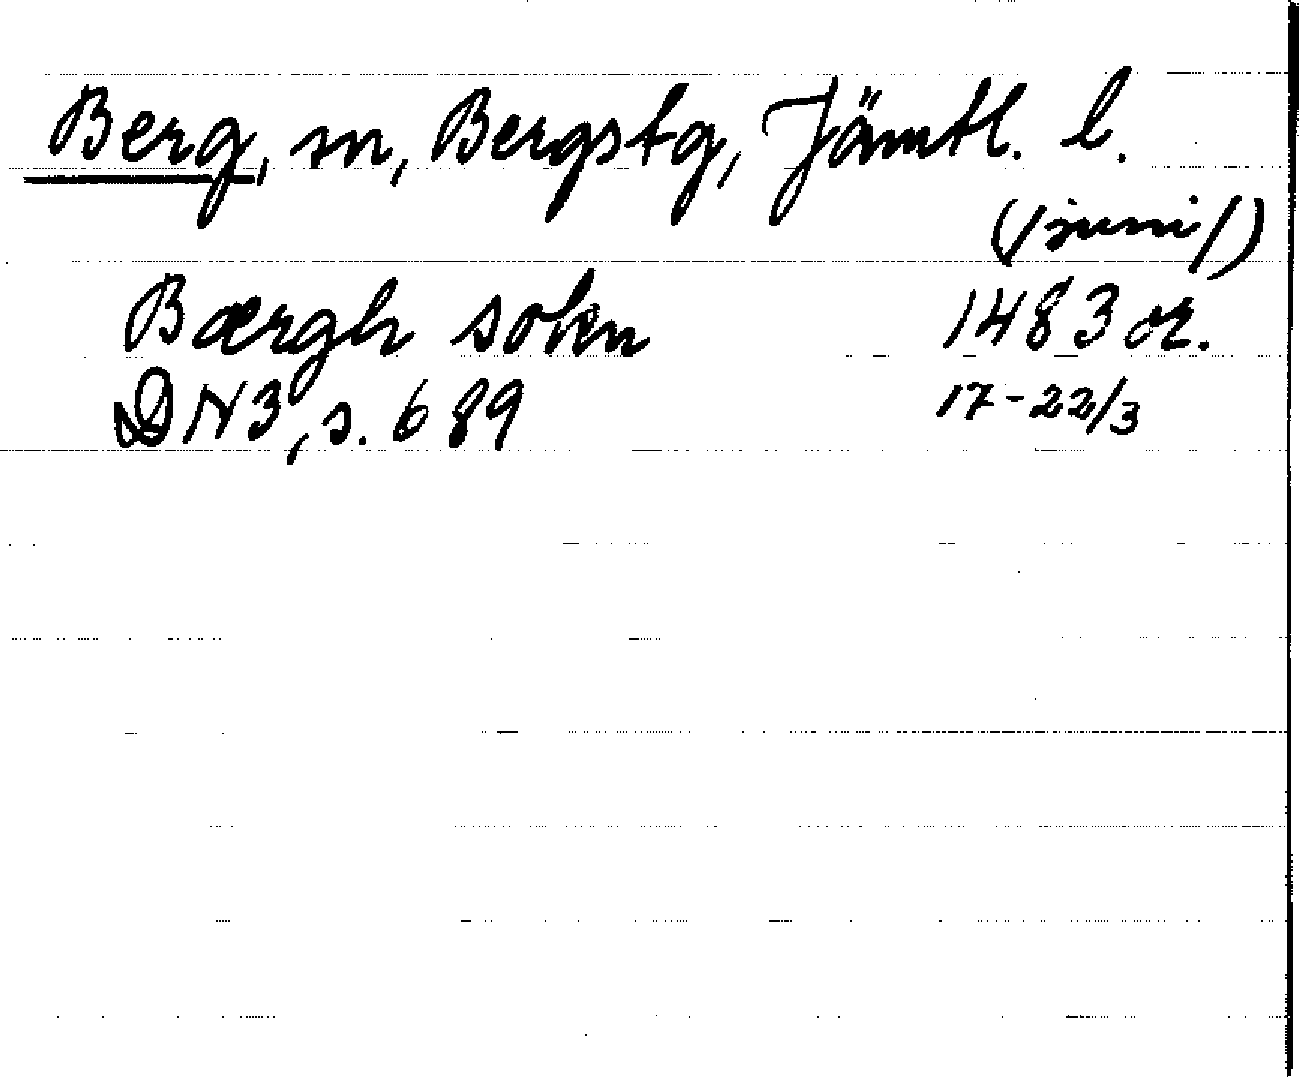 Berg, sn, Bergs tg, Jämtl. l.
(/juni/)
Bærgh sokn 1483 or.
DN 3, s. 689 17-22/3